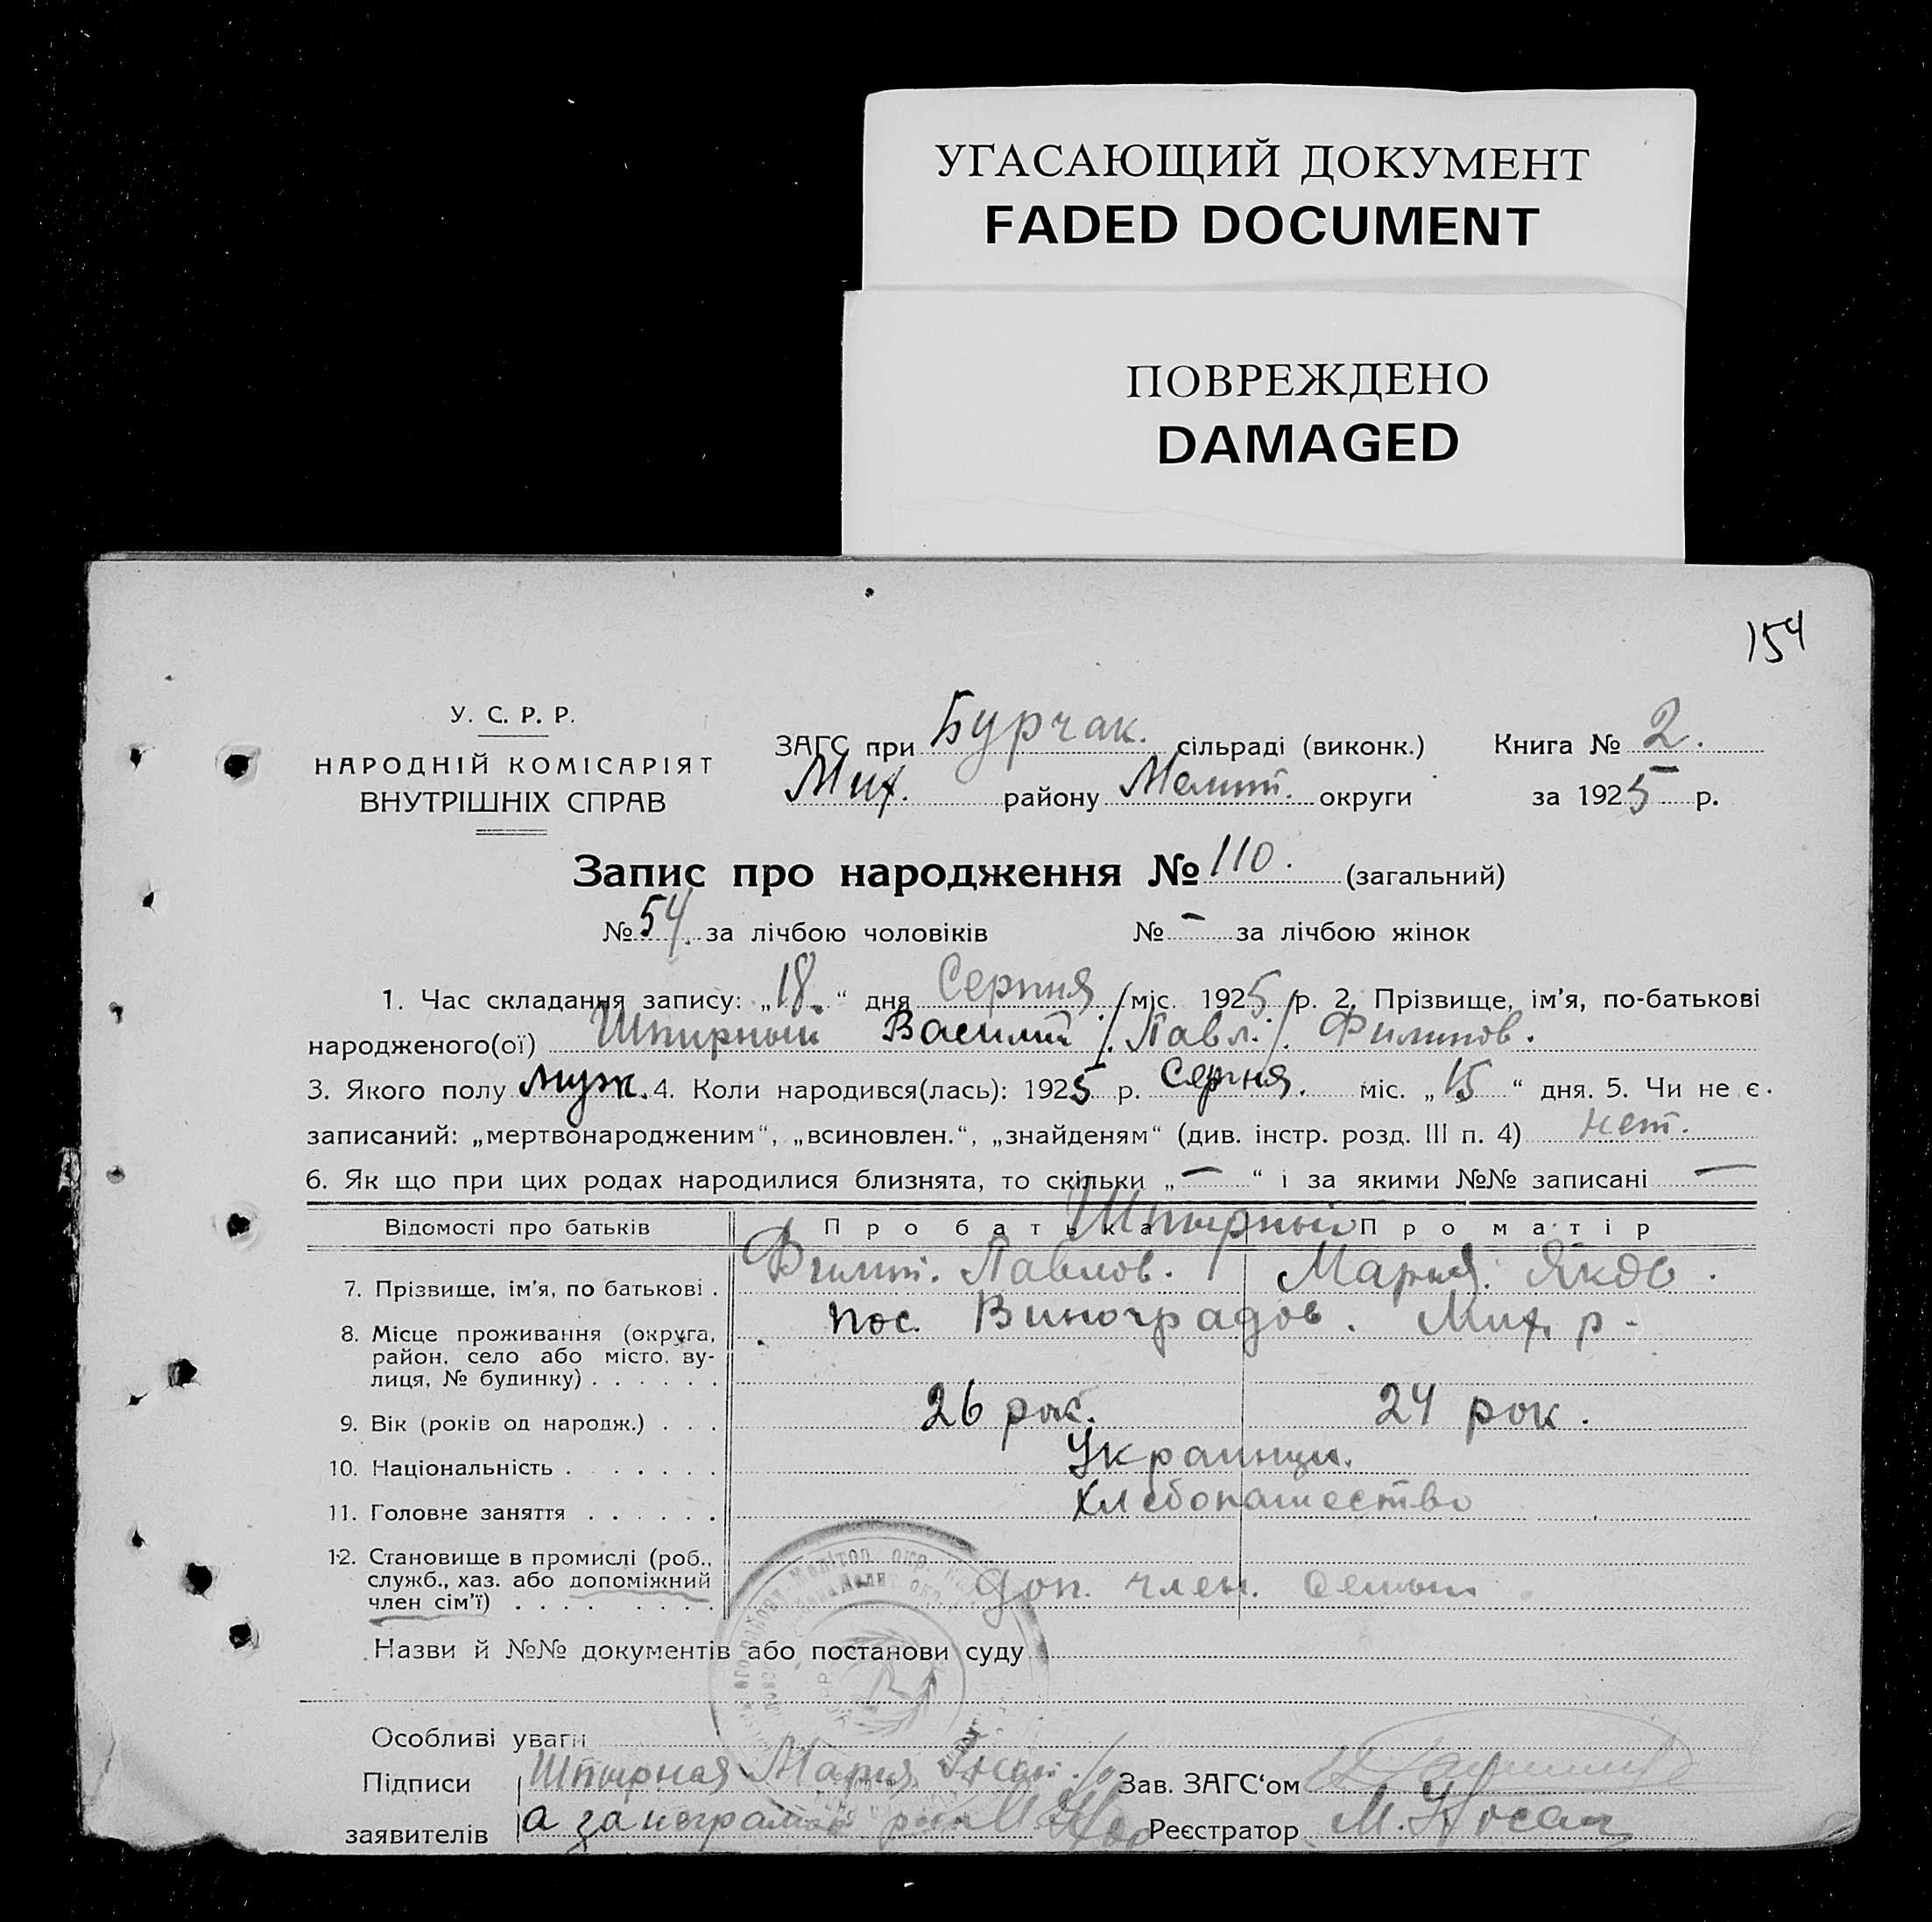 УГАСАЮЩИЙ ДОКУМЕНТ
FADED DOCUMENT
ПОВРЕЖДЕНО
DAMAGED
154
У. С. Р. Р.
НАРОДНІЙ КОМІСАРІЯТ
ВНУТРІШНІХ СПРАВ
ЗАГС при Бурчак. сільраді (виконк.) Книга № 2.
Мих. району Мелит. округи за 1925 р.
Запис про народження № 110. (загальний)
№ 54. за лічбою чоловіків № – за лічбою жінок
1. Час складання запису: „18.“ дня Серпня міс. 1925 р. 2. Прізвище, ім'я, по-батькові
народженого(ої) Штирный Василий /Павл./ Филипов.
3. Якого полу муж. 4. Коли народився(лась): 1925 р. Серпня. міс. „15“ дня. 5. Чи не є
записаний: „мертвонародженим“, „всиновлен.“, „знайденям“ (див. інстр. розд. III п. 4) нет.
6. Як що при цих родах народилися близнята, то скільки „—“ і за якими №№ записані —
Відомості про батьків Про батька Про матір
Штирный
7. Прізвище, ім'я, по батькові . Филип. Павлов. Мария. Яков.
8. Місце проживання (округа, район, село або місто, вулиця, № будинку) . . . . . . пос. Виноградов. Мих. р-
9. Вік (років од народж.) . . . 26 рок. 24 рок.
10. Національність . . . . . . Украинци.
11. Головне заняття . . . . . . Хлебопашество
12. Становище в промислі (роб., служб., хаз. або допоміжний член сім'ї) . . . . . . . . доп. член. семьи
Назви й №№ документів або постанови суду
Особливі уваги
Підписи Штирная Мария Зав. ЗАГС'ом
заявителів а за неграмот М. Носач Реєстратор М. Носач